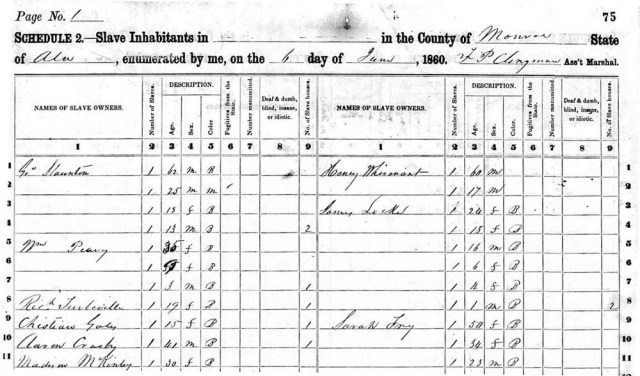 Page No. 1
75
SCHEDULE 2.—Slave Inhabitants in in the County of Monroe State
of Ala, enumerated by me, on the 6 day of June, 1860. Ass't Marshal.
DESCRIPTION. DESCRIPTION.
NAMES OF SLAVE OWNERS. Number of Slaves. Age. Sex. Color Fugitives from the State. Number manumitted. Deaf & dumb, blind, insane, or idiotic. No. of Slave houses. NAMES OF SLAVE OWNERS. Number of Slaves. Age. Sex. Color. Fugitives from the State. Number manumitted. Deaf & dumb, blind, insane, or idiotic. No. of Slave houses.
1 2 3 4 5 6 7 8 9 1 2 3 4 5 6 7 8 9
1 Geo Staunton 1 62 m B Henry Whisenant 1 60 m 1
2 1 25 m m 1 17 m 2
3 1 18 f B James Locke 1 24 f B 3
4 1 13 m B 2 1 18 f B 4
5 Wm Peavy 1 35 f B 1 16 m B 5
6 1 f B 1 6 f B 6
7 1 3 m B 1 1 4 f B 7
8 1 19 f B 1 1 1 m B 2 8
9 Christian 1 15 f B 1 Sarah Fry 1 50 f B 9
10 Aaron Crosby 1 41 m B 1 1 34 f B 10
11 Madison McKinley 1 30 f B 1 23 m B 11